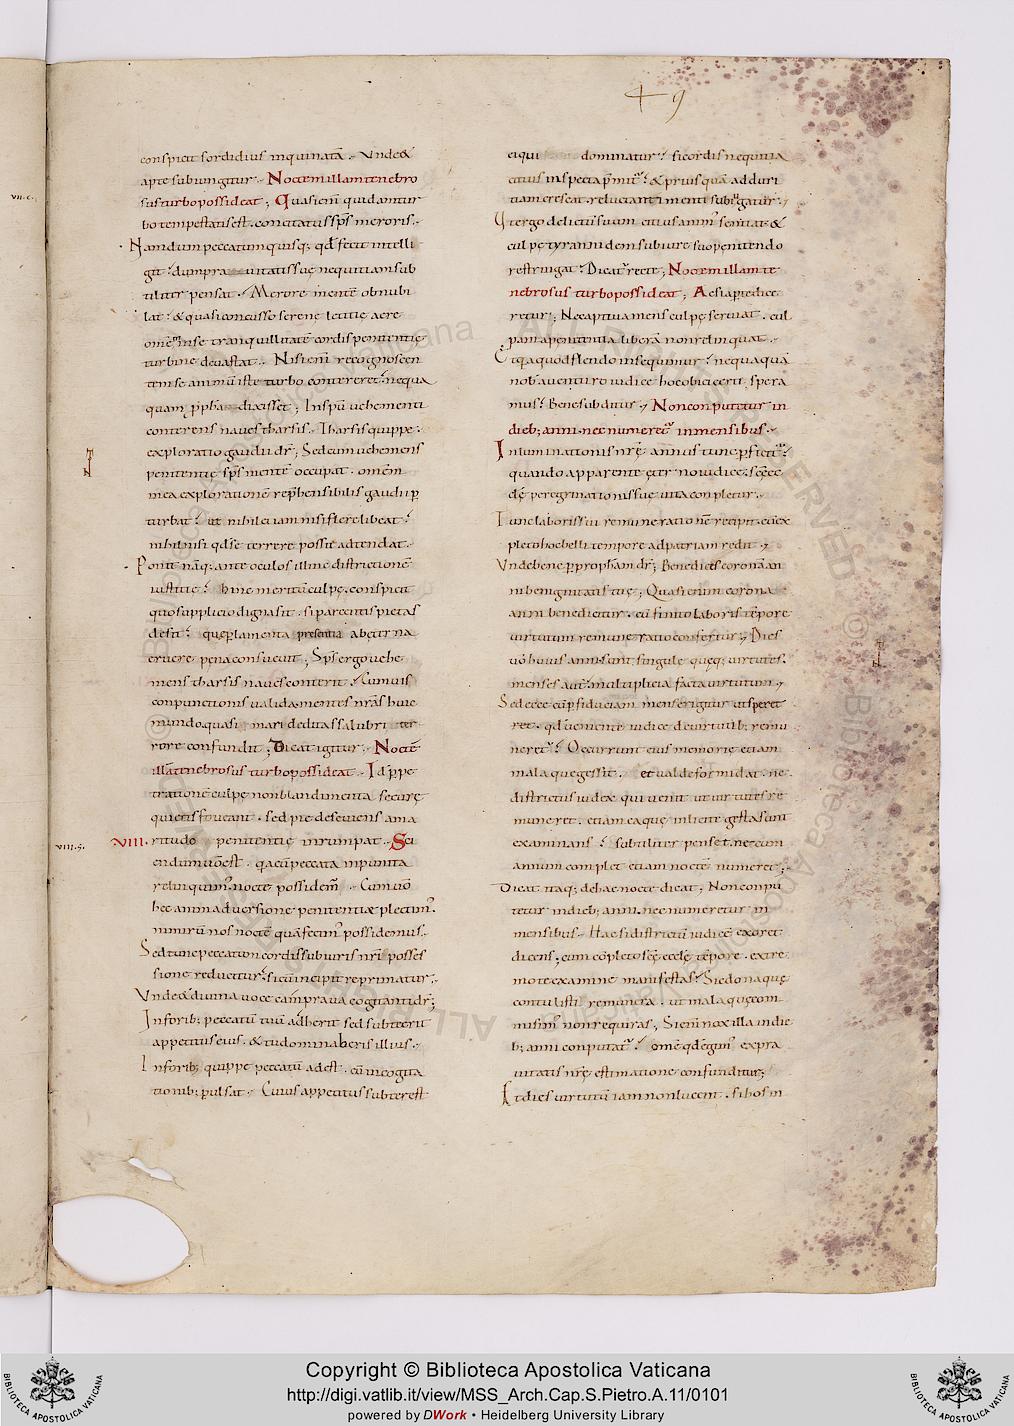 49
conspicit sordidius inquinatā. Unde &
apte subiungitur. Noctem illam tenebro
sus turbo possideat; Quasi eni quidam tur
bo tempestatis est. concitatus sps meroris.
Nam dum peccatum quisq; qd fecit intelli
git. dum pra vitatis suę nequitiam sub
tiliter pensat. Merore mentē obnubi
lat. & quasi concusso serenę letitię aere
omē in se tranquillitatē cordis penitentię
turbine devastat. Nisi eni recognoscen
tem se animū iste turbo contereret. nequa
quam ppha dixisset; In spu vehementi
conterens naves tharsis. Tharsis quippe.
exploratio gaudii dr; Sed cum vehemens
penitentię sps mentē occupat. omēm
in ea explorationē rephensibilis gaudii p
turbat. ut nihil ei iam nisi flere libeat.
nihil nisi qd se terrere possit adtendat.
Ponit nāq; ante oculos illinc districtionē
iustitię. hinc meritū culpę. conspicit
quo supplicio dignas sit. si parcentis pietas
desit. quę p lamenta presentia ab ęterna
eruere pena consuevit; Sps ergo vehe
mens tharsis naves conterit. Cum vis
conpunctionis valida. mentes nrās huic
mundo. quasi mari deditas salubri ter
rore confundit; Dicat igitur. Noctē
illā tenebrosus turbo possideat. Id. ppe
trationē culpę non blandimenta securę
quietis foveant. sed pie deseviens ama
VIII. ritudo penitentię inrumpat. Sci
endum vo est. qa cū peccata inpunita
relinquim. nocte possidem. Cum vo
hec animadversione penitentiæ plectim.
nimirū nos noctē quā fecim possidemus.
Sed tunc peccatum cordis sub iuris nri posses
sione reducitur. si cū incipit reprimatur.
Unde & divina voce cain prava cogitanti dr;
In forib; peccatū tuū adherit sed sub te erit
appetitus eius. & tu dominaberis illius.
In forib; quippe peccatū adest. cū in cogita
tionib; pulsat. Cuius appetitus subter est
eiqui dominatur. si cordis nequitia
citius inspecta pmit. & prius quā ad duri
tiam crescat. reluctanti menti subigatur.
Ut ergo delictū suum citius anim sentiat. &
culpę tyrannidem sub iure suo penitendo
restringat. Dicat recte; Noctem illam te
nebrosus turbo possideat; Ac si aptę dice
retur; Ne captiva mens culpę serviat. cul
pam a penitentia liberā non relinquat.
Et qa quod flendo insequimur. nequaquā
nob a venturo iudice hoc obici certi spera
mus. Bene subditur. Non conputetur in
dieb; anni. nec numeret in mensibus.
Inluminationis nrę annus tunc pficit.
quando apparente ętno iudice. scęecc
clę peregrinationis suę vita completur.
Tunc laboris sui remunerationē recipit. cū ex
pleto hoc belli tempore ad patriam redit.
Unde bene p propham dr; Benedicis coronam an
ni benignitatis tuę; Quasi enim corona
anni benedicitur. cū finito laboris tēpore
virtutum remuneratio confertur. Dies
vō huius anni. sunt singule quęq; virtutes.
menses aut. multiplicia facta virtutum.
Sed ecce cū p fiduciam mens erigitur ut speret
ret. qd veniente iudice de virtutib; remu
neret. Occurrunt eius memorię etiam
mala que gessit. et valde formidat. ne
districtus iudex qui venit ut virtutes re
muneret. etiam ea que inlicite gesta sunt
examinans. subtiliter penset. ne cum
annum complet etiam noctē numeret;
Dicat itaq; de hac nocte dicat; Non conpu
tetur in dieb; anni. nec numeretur in
mensibus. Hac si districtū iudicē exoret
dicens; cum cōpleto scę ecclę tēpore. extre
mo te examine manifestas. Sic dona que
contulisti remunera. ut mala que com
misim non requiras; Si eni nox illa in die
b; anni conputat. omē qd egim ex pra
vitatis nrę estimatione confunditur;
Et dies virtutū iam non lucent. si hos in
VII. c.
VIII. s.
Copyright © Biblioteca Apostolica Vaticana
http://digi.vatlib.it/view/MSS_Arch.Cap.S.Pietro.A.11/0101
powered by DWork • Heidelberg University Library
BIBLIOTECA APOSTOLICA VATICANA
BIBLIOTECA APOSTOLICA VATICANA